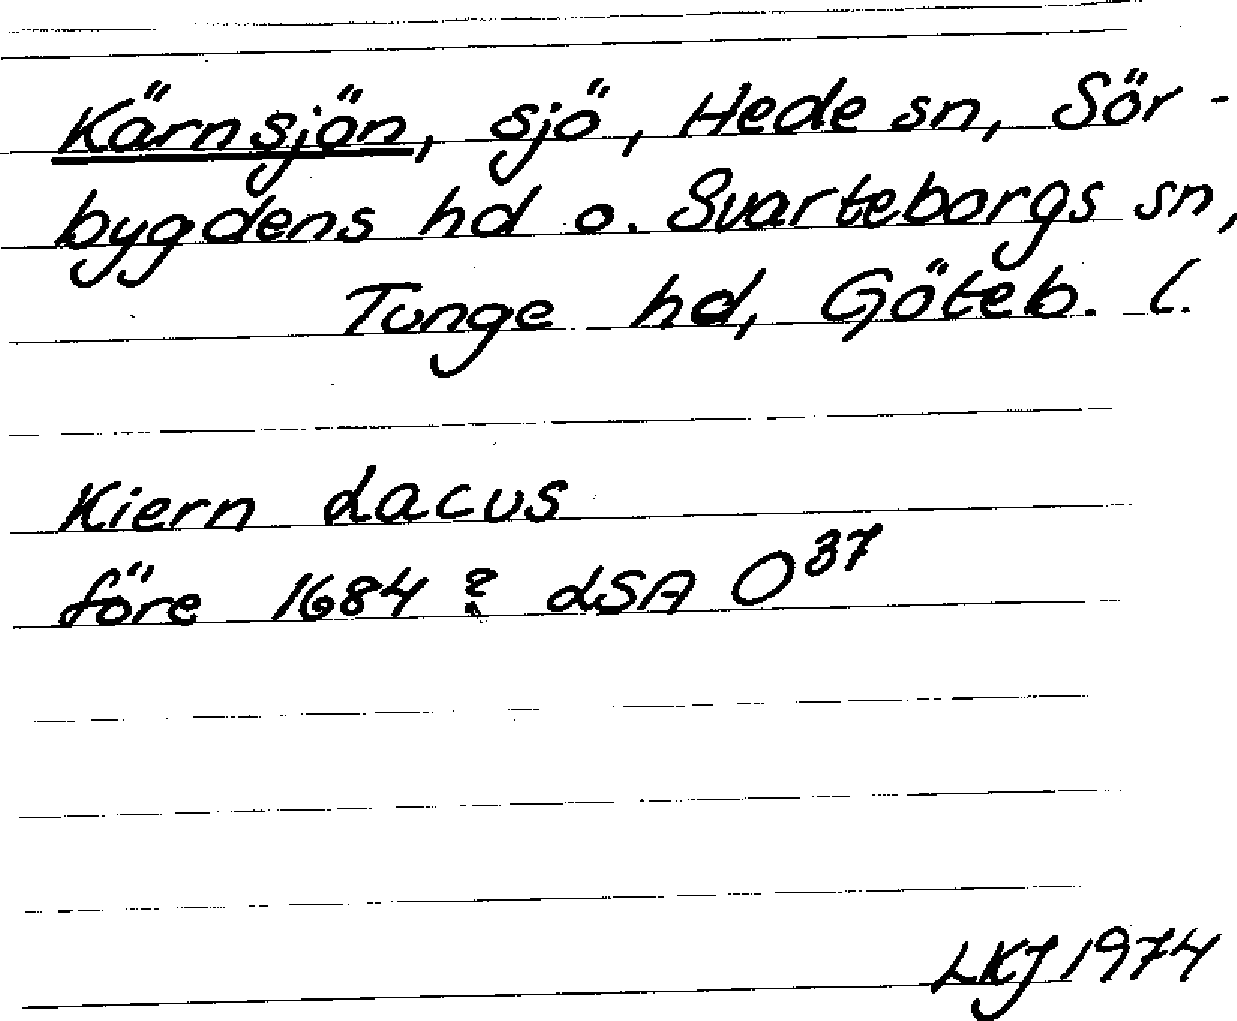 Kärnsjön, sjö, Hede sn, Sör-
bygdens hd o. Svarteborgs sn,
Tunge hd, Göteb. l.
Kiern Lacus
före 1684? LSA O37
LKJ 1974